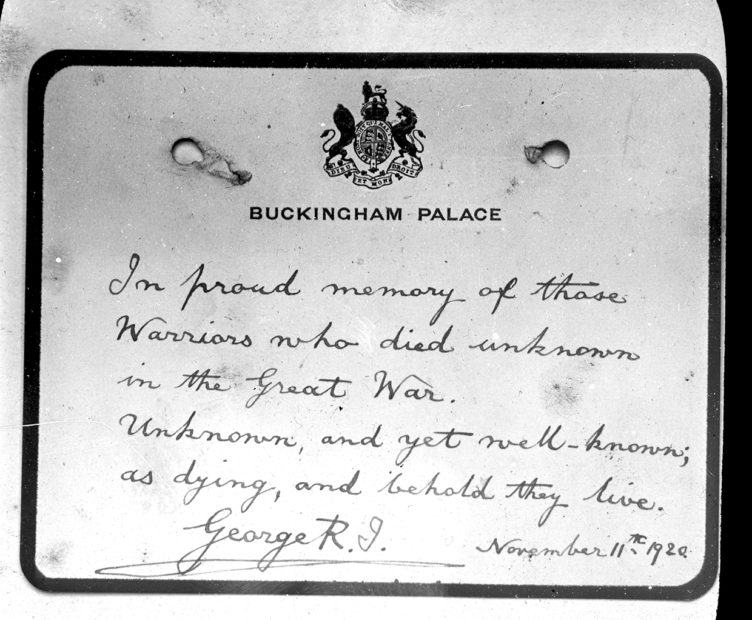 DIEU ET MON DROIT
BUCKINGHAM PALACE
In proud memory of those
Warriors who died unknown
in the Great War.
Unknown, and yet well-known;
as dying, and behold they live.
George R.I.
November 11th 1920